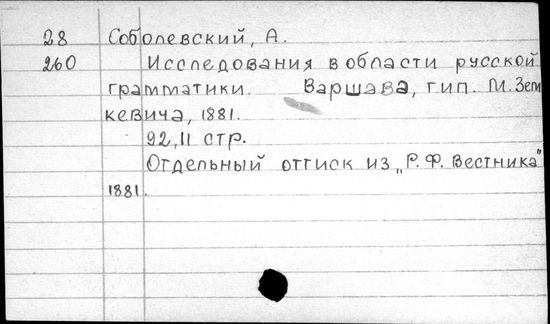 28 Соболевский, А.
260 Исследования в области русской
грамматики. Варшава, тип. М. Зем
кевича, 1881.
92, II стр.
Отдельный оттиск из „Р. Ф. Вестника"
1881.